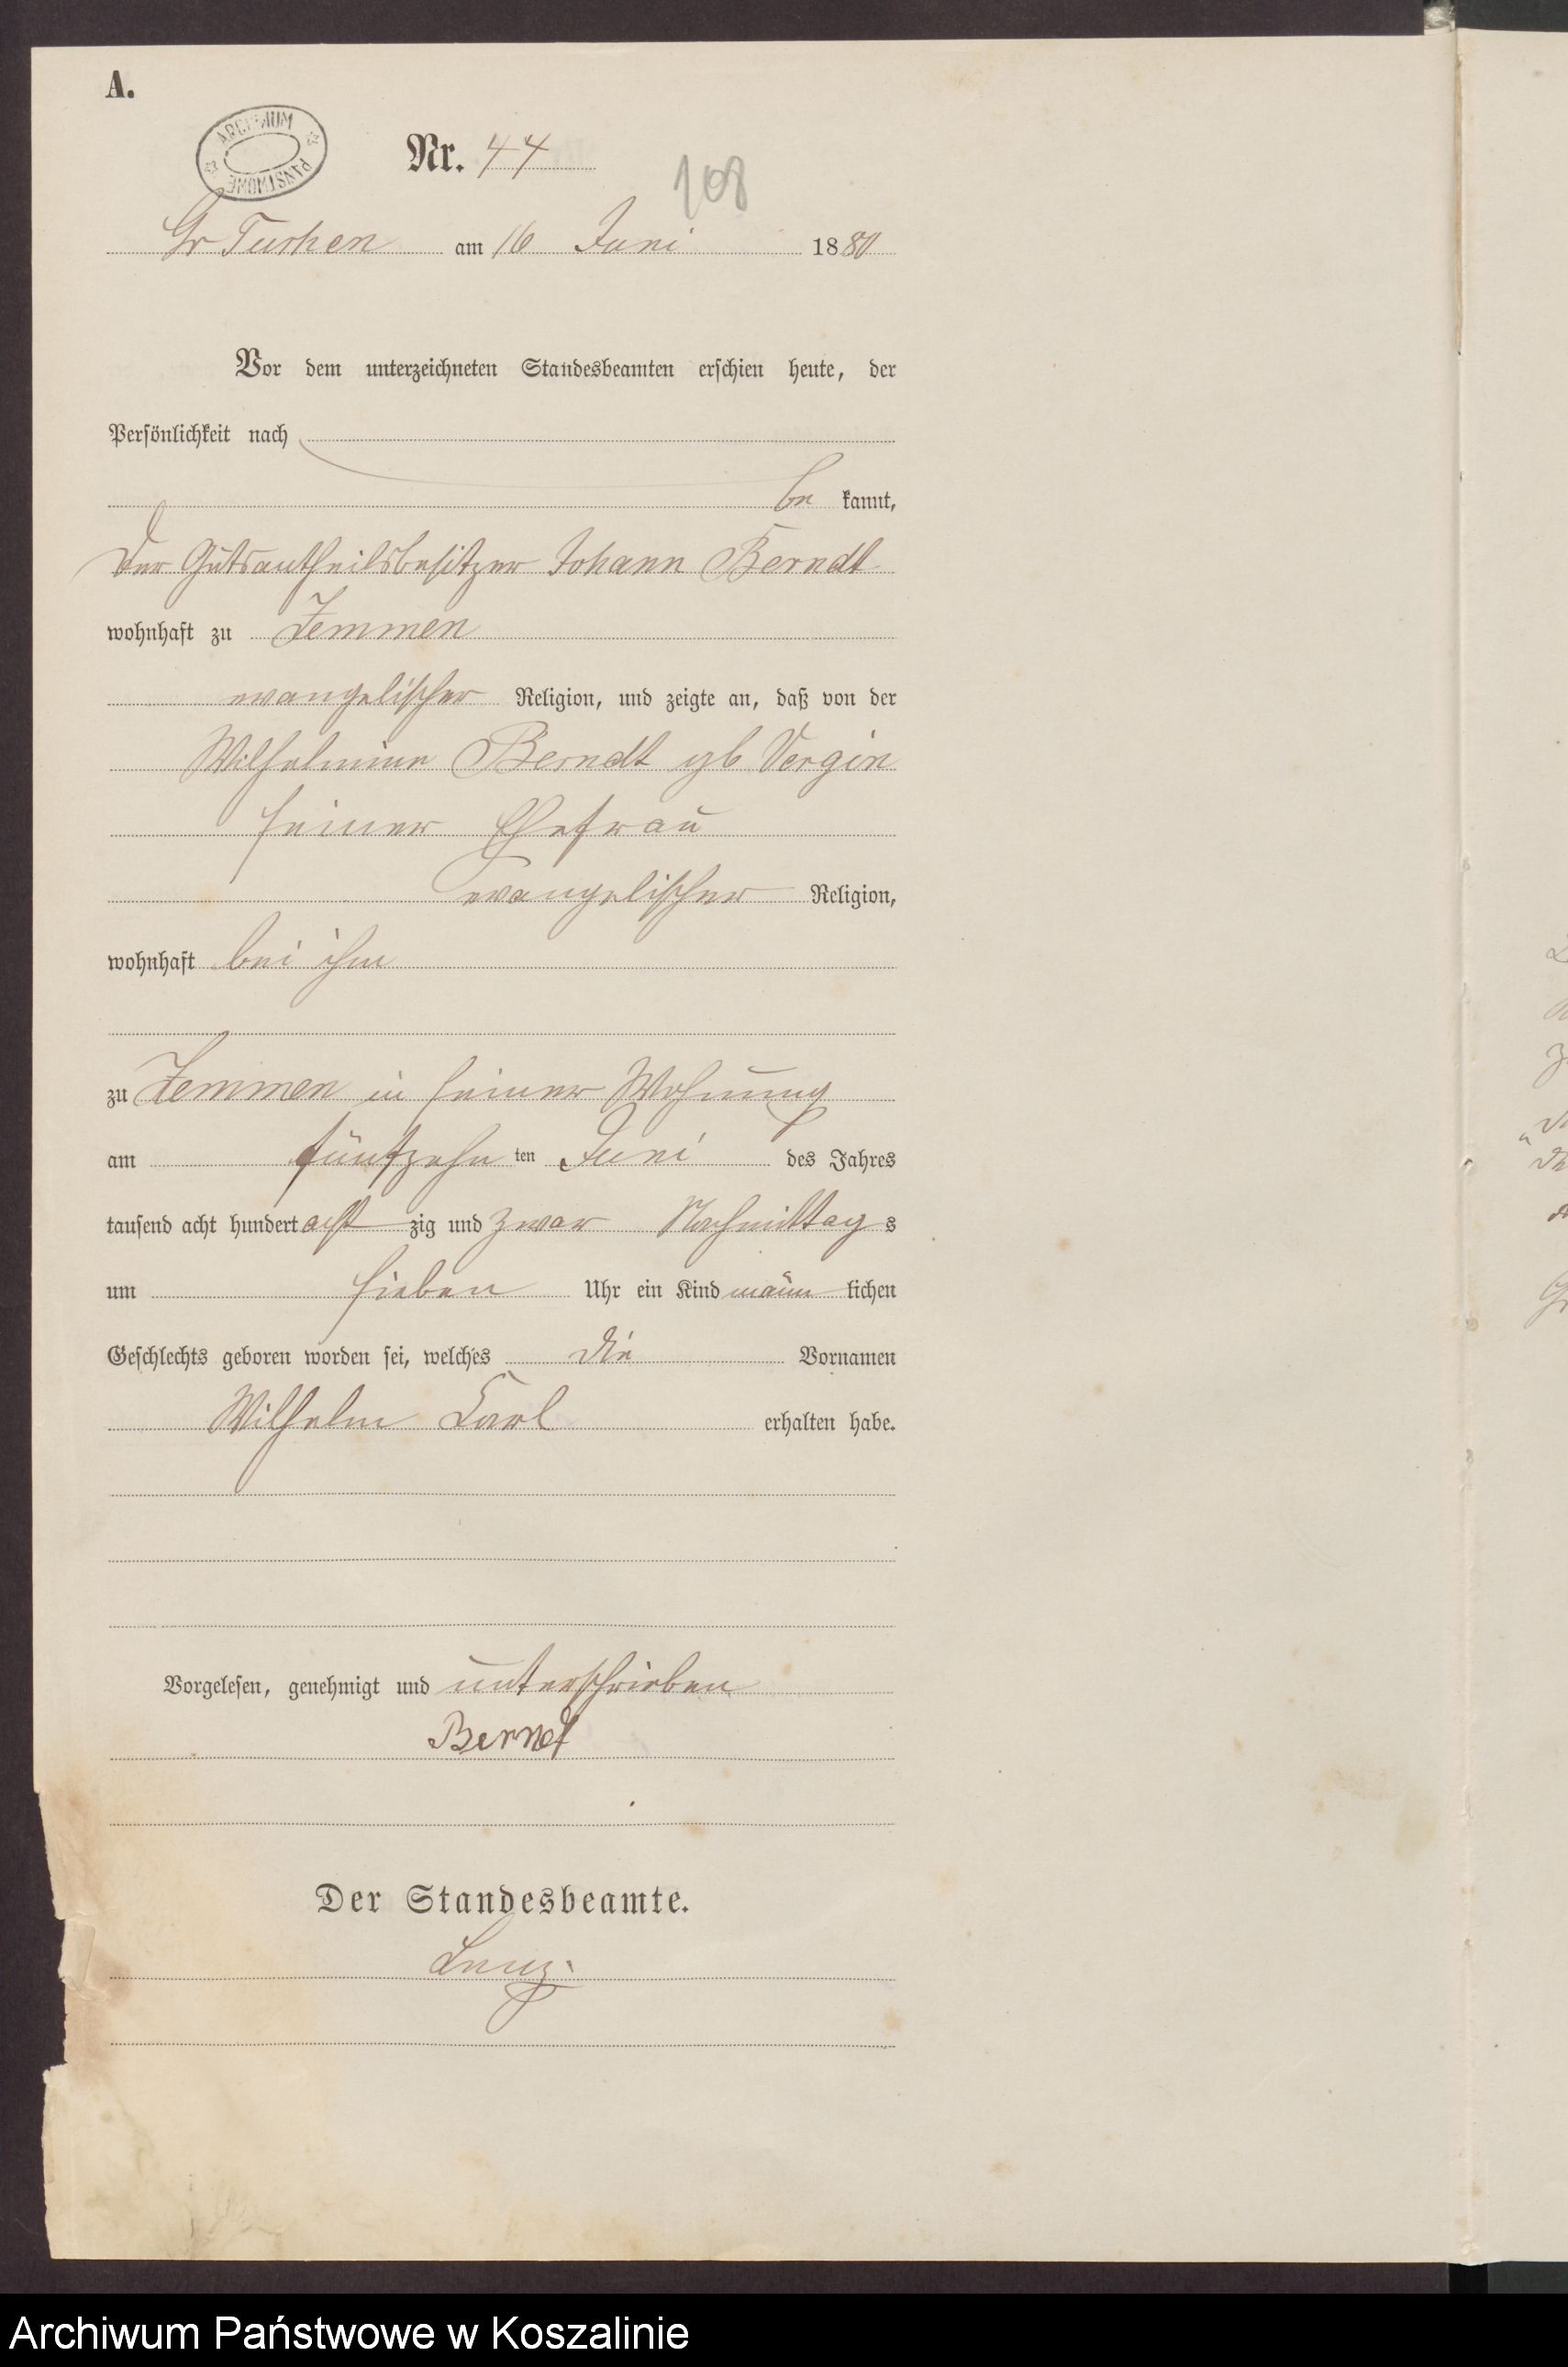 A.
ARCHIWUM PAŃSTWOWE
Nr. 44
108
Gr Tuchen am 16 Juni 1880
Vor dem unterzeichneten Standesbeamten erschien heute, der
Persönlichkeit nach
be kannt,
der Gutsantheilsbesitzer Johann Berndt
wohnhaft zu Zemmen
evangelischer Religion, und zeigte an, daß von der
Wilhelmine Berndt gb Vergin
seiner Ehefrau
evangelischer Religion,
wohnhaft bei ihm
zu Zemmen in seiner Wohnung
am fünfzehn ten Juni des Jahres
tausend acht hundert acht zig und zwar Nachmittag s
um sieben Uhr ein Kind männ lichen
Geschlechts geboren worden sei, welches die Vornamen
Wilhelm Carl erhalten habe.
Vorgelesen, genehmigt und unterschrieben
Berndt
Der Standesbeamte.
Lenz.
Archiwum Państwowe w Koszalinie